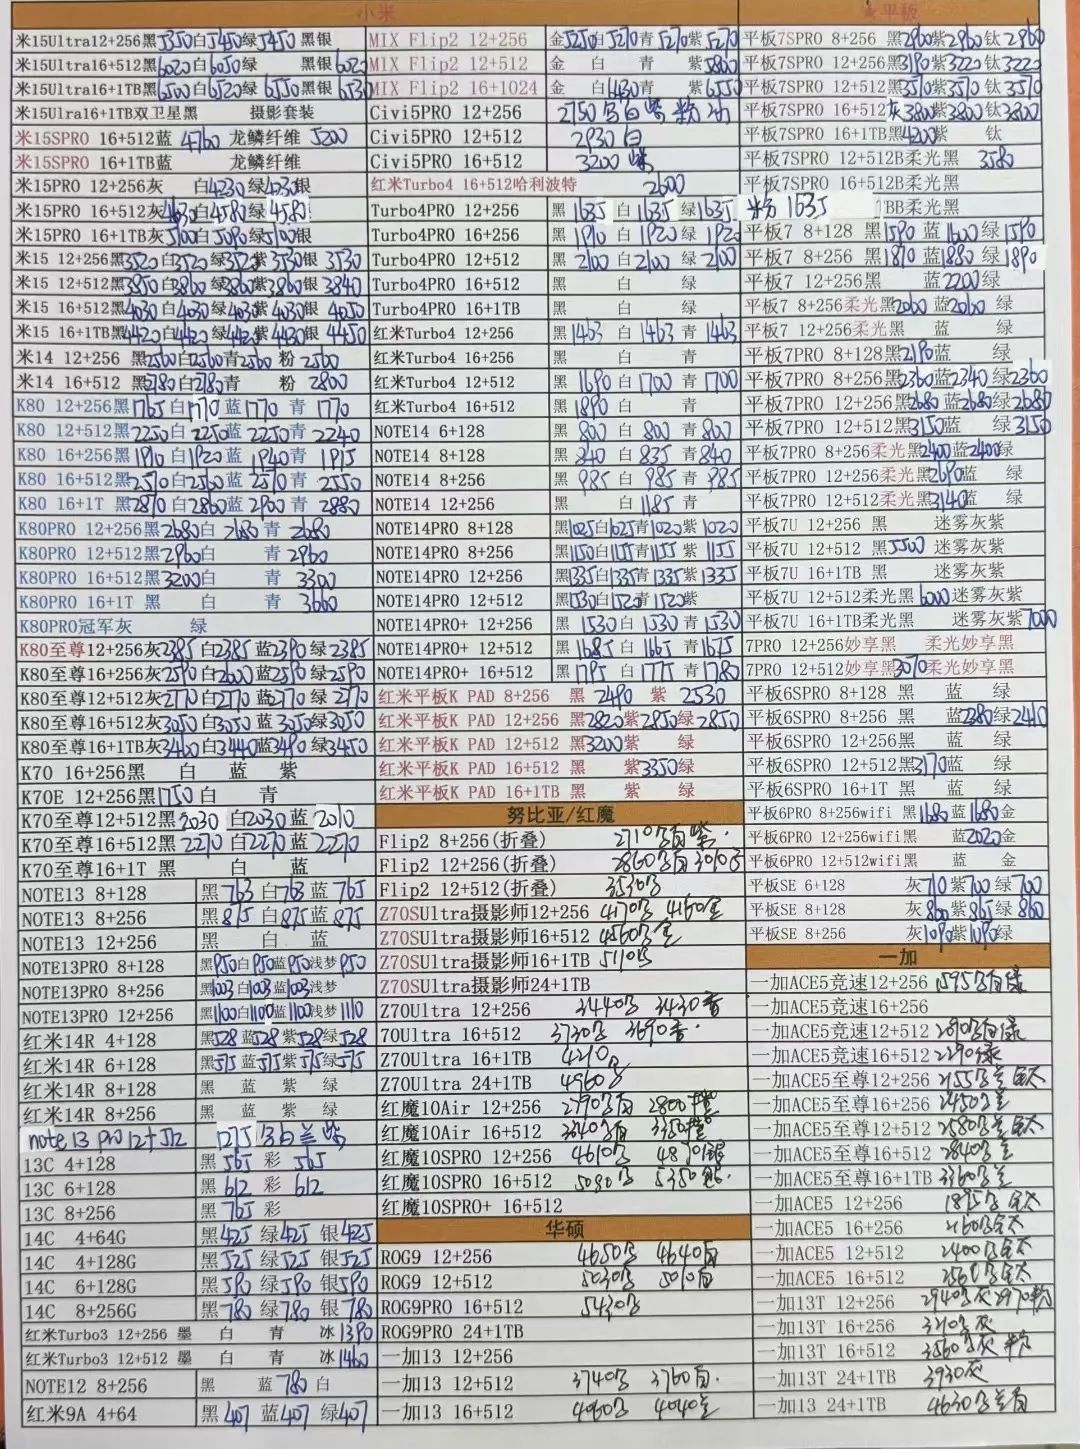 小米
米15Ultra12+256黑5350白5450绿5450 黑银
米15Ultra16+512黑6020白6050绿 黑银6020
米15Ultra16+1TB黑6500白6520绿6550黑银6530
米15Ulra16+1TB双卫星黑 摄影套装
米15SPRO 16+512蓝 4760 龙鳞纤维 5200
米15SPRO 16+1TB蓝 龙鳞纤维
米15PRO 12+256灰 白4230绿4230银
米15PRO 16+512灰4630白4580绿4580
米15PRO 16+1TB灰5100白5090绿5100银
米15 12+256黑3520白3520绿3520紫3530银3530
米15 12+512黑3850白3860绿3860紫3860银3840
米15 16+512黑4030白4030绿4030紫4030银4050
米15 16+1TB黑4420白4420绿4420紫4430银4450
米14 12+256 黑2560白2560青2560 粉 2560
米14 16+512 黑2780白2780青 粉 2800
K80 12+256黑1765白1770蓝1770 青 1770
K80 12+512黑2250白2250蓝2250青2240
K80 16+256黑1910白1920蓝1940青1915
K80 16+512黑2570白2560蓝2570青2550
K80 16+1T 黑2870白2860蓝2900青2880
K80PRO 12+256黑2680白 2680 青 2680
K80PRO 12+512黑2960白 青2960
K80PRO 16+512黑3200白 青 3300
K80PRO 16+1T 黑 白 青 3660
K80PRO冠军灰 绿
K80至尊12+256灰2385白2385蓝2390绿2385
K80至尊16+256灰2590白2600蓝2590绿2590
K80至尊12+512灰2770白2770蓝2770绿2770
K80至尊16+512灰3050白3050蓝3050绿3050
K80至尊16+1TB灰3460白3440蓝3490绿3450
K70 16+256黑 白 蓝 紫
K70E 12+256黑1750白 青
K70至尊12+512黑2030 白2030蓝2010
K70至尊16+512黑2270白2270蓝2270
K70至尊16+1T 黑 白 蓝
NOTE13 8+128 黑763白763蓝765
NOTE13 8+256 黑875白875蓝875
NOTE13 12+256 黑 白 蓝
NOTE13PRO 8+128 黑950白950蓝950浅梦950
NOTE13PRO 8+256 黑1003白1003蓝1003浅梦
NOTE13PRO 12+256 黑1100白1100蓝1100浅梦1110
红米14R 4+128 黑528蓝528紫528绿528
红米14R 6+128 黑575蓝575紫575绿575
红米14R 8+128 黑 蓝 紫 绿
红米14R 8+256 黑 蓝 紫 绿
note 13 pro 12+512 1275黑白兰紫
13C 4+128 黑 565 彩 565
13C 6+128 黑 612 彩 612
13C 8+256 黑 765 彩
14C 4+64G 黑425绿425银425
14C 4+128G 黑525绿525银525
14C 6+128G 黑590绿590银590
14C 8+256G 黑780绿780银780
红米Turbo3 12+256 墨 白 青 冰1390
红米Turbo3 12+512 墨 白 青 冰1460
NOTE12 8+256 黑 蓝780白
红米9A 4+64 黑407蓝407绿407
MIX Flip2 12+256 金5250白5270青5270紫5270
MIX Flip2 12+512 金 白 青 紫5800
MIX Flip2 16+1024 金 白6430青 紫6550
Civi5PRO 12+256 2750黑白紫粉
Civi5PRO 12+512 2930白
Civi5PRO 16+512 3200紫
红米Turbo4 16+512哈利波特 2600
Turbo4PRO 12+256 黑1635白1635绿1635 粉1635
Turbo4PRO 16+256 黑1910白1920绿1920
Turbo4PRO 12+512 黑2100白2100绿2100
Turbo4PRO 16+512 黑 白 绿
Turbo4PRO 16+1TB 黑 白 绿
红米Turbo4 12+256 黑1463白1463青1463
红米Turbo4 16+256 黑 白 青
红米Turbo4 12+512 黑1690白1700青1700
红米Turbo4 16+512 黑1890白 青
NOTE14 6+128 黑800白800青800
NOTE14 8+128 黑840白835青840
NOTE14 8+256 黑985白985青985
NOTE14 12+256 黑 白1185青
NOTE14PRO 8+128 黑1025白1025青1020紫1020
NOTE14PRO 8+256 黑1150白1155青1155紫1155
NOTE14PRO 12+256 黑1335白1335青1335紫1335
NOTE14PRO 12+512 黑1530白1520青1520紫
NOTE14PRO+ 12+256 黑1530白1530青1530
NOTE14PRO+ 12+512 黑1685白1665青1675
NOTE14PRO+ 16+512 黑1795白1775青1780
红米平板K PAD 8+256 黑 2490 紫 2530
红米平板K PAD 12+256 黑2820紫2850绿2850
红米平板K PAD 12+512 黑3200紫 绿
红米平板K PAD 16+512 黑 紫3350绿
红米平板K PAD 16+1TB 黑 紫 绿
努比亚/红魔
Flip2 8+256(折叠) 2710黑白紫
Flip2 12+256(折叠) 2860黑白
Flip2 12+512(折叠) 3530黑
Z70SUltra摄影师12+256 4170黑 4160金
Z70SUltra摄影师16+512 4560黑金
Z70SUltra摄影师16+1TB 5110黑
Z70SUltra摄影师24+1TB
Z70Ultra 12+256 3440黑 3430香
70Ultra 16+512 3730黑 3690香
Z70Ultra 16+1TB 4210黑
Z70Ultra 24+1TB 4960黑
红魔10Air 12+256 2790黑白 2800橙
红魔10Air 16+512 3340黑白 3350橙
红魔10SPRO 12+256 4610黑
红魔10SPRO 16+512 5080黑
红魔10SPRO+ 16+512
华硕
ROG9 12+256 4650黑 4640白
ROG9 12+512 5030黑 5010白
ROG9PRO 16+512 5430黑
ROG9PRO 24+1TB
一加13 12+256
一加13 12+512 3740黑 3760白
一加13 16+512 4060黑 4040兰
★平板
平板7SPRO 8+256 黑2960紫2960钛2960
平板7SPRO 12+256黑3190紫3220钛3220
平板7SPRO 12+512黑3570紫3570钛3570
平板7SPRO 16+512灰3800紫3800钛3800
平板7SPRO 16+1TB黑4200紫 钛
平板7SPRO 12+512B柔光黑 3580
平板7SPRO 16+512B柔光黑
TBB柔光黑
平板7 8+128 黑1590蓝1600绿1590
平板7 8+256 黑1870蓝1880绿1890
平板7 12+256黑 蓝2200绿
平板7 8+256柔光黑2060蓝2060绿
平板7 12+256柔光黑 蓝 绿
平板7PRO 8+128黑2190蓝 绿
平板7PRO 8+256黑2360蓝2340绿2360
平板7PRO 12+256黑2680蓝2680绿2680
平板7PRO 12+512黑3150蓝 绿3150
平板7PRO 8+256柔光黑2400蓝2400绿
平板7PRO 12+256柔光黑2690蓝 绿
平板7PRO 12+512柔光黑3140蓝 绿
平板7U 12+256 黑 迷雾灰紫
平板7U 12+512 黑5500 迷雾灰紫
平板7U 16+1TB 黑 迷雾灰紫
平板7U 12+512柔光黑6000迷雾灰紫
平板7U 16+1TB柔光黑 迷雾灰紫7000
7PRO 12+256妙享黑 柔光妙享黑
7PRO 12+512妙享黑3070柔光妙享黑
平板6SPRO 8+128 黑 蓝 绿
平板6SPRO 8+256 黑 蓝2380绿2410
平板6SPRO 12+256黑 蓝 绿
平板6SPRO 12+512黑3170蓝 绿
平板6SPRO 16+1T 黑 蓝 绿
平板6PRO 8+256wifi 黑1680蓝1680金
平板6PRO 12+256wifi黑 蓝2020金
平板6PRO 12+512wifi黑 蓝 金
平板SE 6+128 灰710紫700绿700
平板SE 8+128 灰860紫865绿860
平板SE 8+256 灰1090紫1090绿
一加
一加ACE5竞速12+256 1595黑白绿
一加ACE5竞速16+256
一加ACE5竞速12+512 2090黑白绿
一加ACE5竞速16+512 2290绿
一加ACE5至尊12+256 2155黑兰钛
一加ACE5至尊16+256 2450黑兰
一加ACE5至尊12+512 2580黑兰钛
一加ACE5至尊16+512 2840黑兰
一加ACE5至尊16+1TB 3360黑兰
一加ACE5 12+256 1895黑钛
一加ACE5 16+256 2160黑钛
一加ACE5 12+512 2400黑钛
一加ACE5 16+512 2560黑钛
一加13T 12+256 2940黑灰2970粉
一加13T 16+256 3210黑灰
一加13T 16+512 3560黑灰粉
一加13T 24+1TB 3930灰
一加13 24+1TB 4630黑兰白